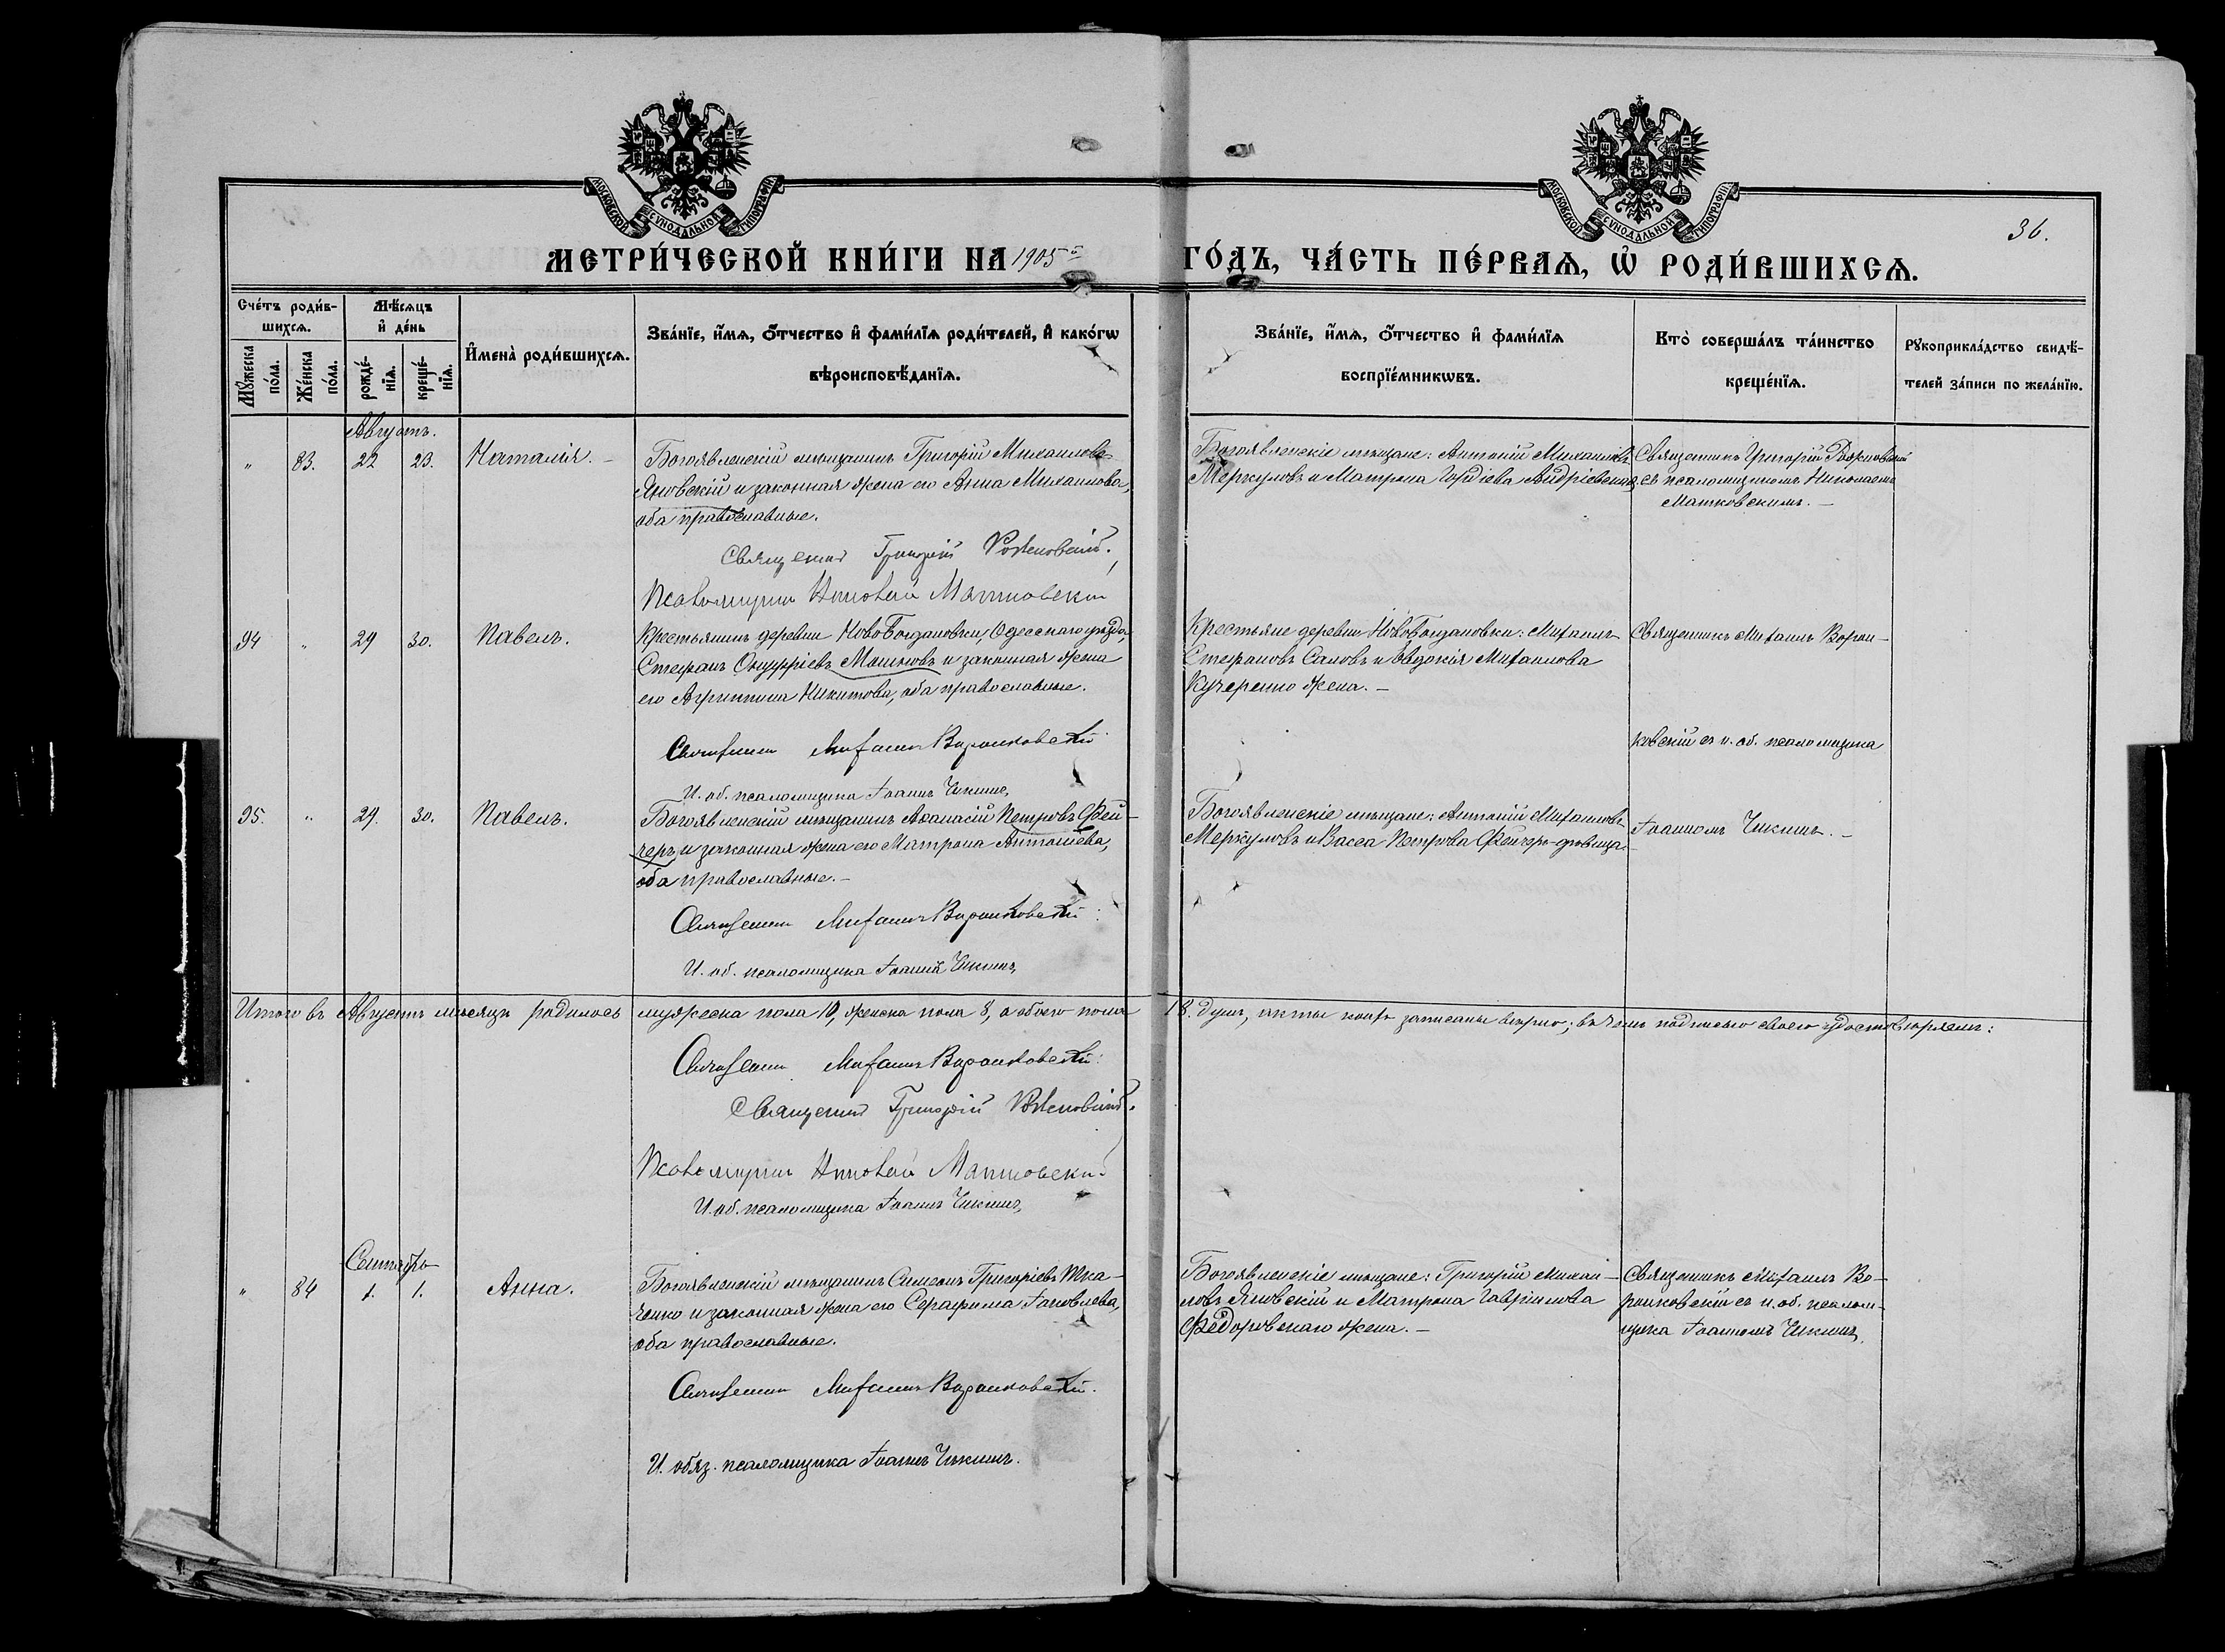 МОСКОВСКОЙ СУНОДАЛЬНОЙ ТИПОГРАФІИ
МОСКОВСКОЙ СУНОДАЛЬНОЙ ТИПОГРАФІИ
36.
МЕТРИ́ЧЕСКОЙ КНИ́ГИ НА 1905й ГО́ДЪ, ЧА́СТЬ ПЕ́РВАѦ, Ѡ҆ РОДИ́ВШИХСѦ.
Сче́тъ роди́в-
шихсѧ.
Мѣ́сѧцъ
и҆ де́нь
Мꙋ́жеска
по́ла.
Же́нска
по́ла.
рожде́-
нїѧ.
креще́-
нїѧ.
И҆мена̀ роди́вшихсѧ.
Зва́нїе, и҆́мѧ, ѻ҆́тчество и҆ фами́лїѧ роди́телей, и҆ како́гѡ
вѣроисповѣ́данїѧ.
Зва́нїе, и҆́мѧ, ѻ҆́тчество и҆ фами́лїѧ
воспрїе́мникѡвъ.
Кто̀ соверша́лъ та́инство
креще́нїѧ.
Рꙋкоприкла́дство свидѣ́-
телей за́писи по жела́нїю.
Августъ.
" 83. 22 23. Наталія. –
Богоявленскій мѣщанинъ Григорій Михаиловъ
Яновскій и законная жена его Анна Михаилова,
оба православные.
Священникъ Григорій Рожновскій.
Псаломщикъ Николай Матковскій
Богоявленскіе мѣщане: Антоній Михаиловъ
Меркуловъ и Матрона Гордіева Андріевская
Священникъ Григорій Рожновскій
съ псаломщикомъ Николаемъ
Матковскимъ. –
94 " 29 30. Павелъ.
Крестьянинъ деревни НовоБогдановки, Одесскаго уѣзда,
Стефанъ Онуфріевъ Машковъ и законная жена
его Агриппина Никитова, оба православные.
Священникъ Михаилъ Воронковскій
И. об. псаломщика Іоаннъ Чикишъ,
Крестьяне деревни НовоБогдановки: Михаилъ
Стефановъ Саловъ и Евдокія Михаилова
Кучеренко жена. –
Священникъ Михаилъ Ворон-
ковскій съ и. об. псаломщика
Іоанномъ Чикишъ. –
95. " 29. 30. Павелъ.
Богоявленскій мѣщанинъ Аѳанасій Петровъ Фей-
черъ и законная жена его Матрона Антоніева,
оба православные. –
Священникъ Михаилъ Воронковскій
И. об. псаломщика Іоаннъ Чикишъ,
Богоявленскіе мѣщане: Антоній Михаиловъ
Меркуловъ и Васса Петрова Фейчеръ-дѣвица.
Итого въ Августѣ мѣсяцѣ родилось мужеска пола 10, женска пола 8, а обоего пола 18. душъ, акты коихъ записаны вѣрно; въ чемъ подписью своею удостовѣряемъ:
Священникъ Михаилъ Воронковскій:
Священникъ Григорій Рожновскій.
Псаломщикъ Николай Матковскій
И. об. псаломщика Іоаннъ Чикишъ,
Сентябрь
" 84 1. 1. Анна.
Богоявленскій мѣщанинъ Симеонъ Григоріевъ Тка-
ченко и законная жена его Серафима Іаковлева,
оба православные.
Священникъ Михаилъ Воронковскій.
И. обяз. псаломщика Іоаннъ Чикишъ.
Богоявленскіе мѣщане: Григорій Михаи-
ловъ Яновскій и Матрона Гавріилова
Федоровскаго жена. –
Священникъ Михаилъ Во-
ронковскій съ и. об. псалом-
щика Іоанномъ Чикишъ.